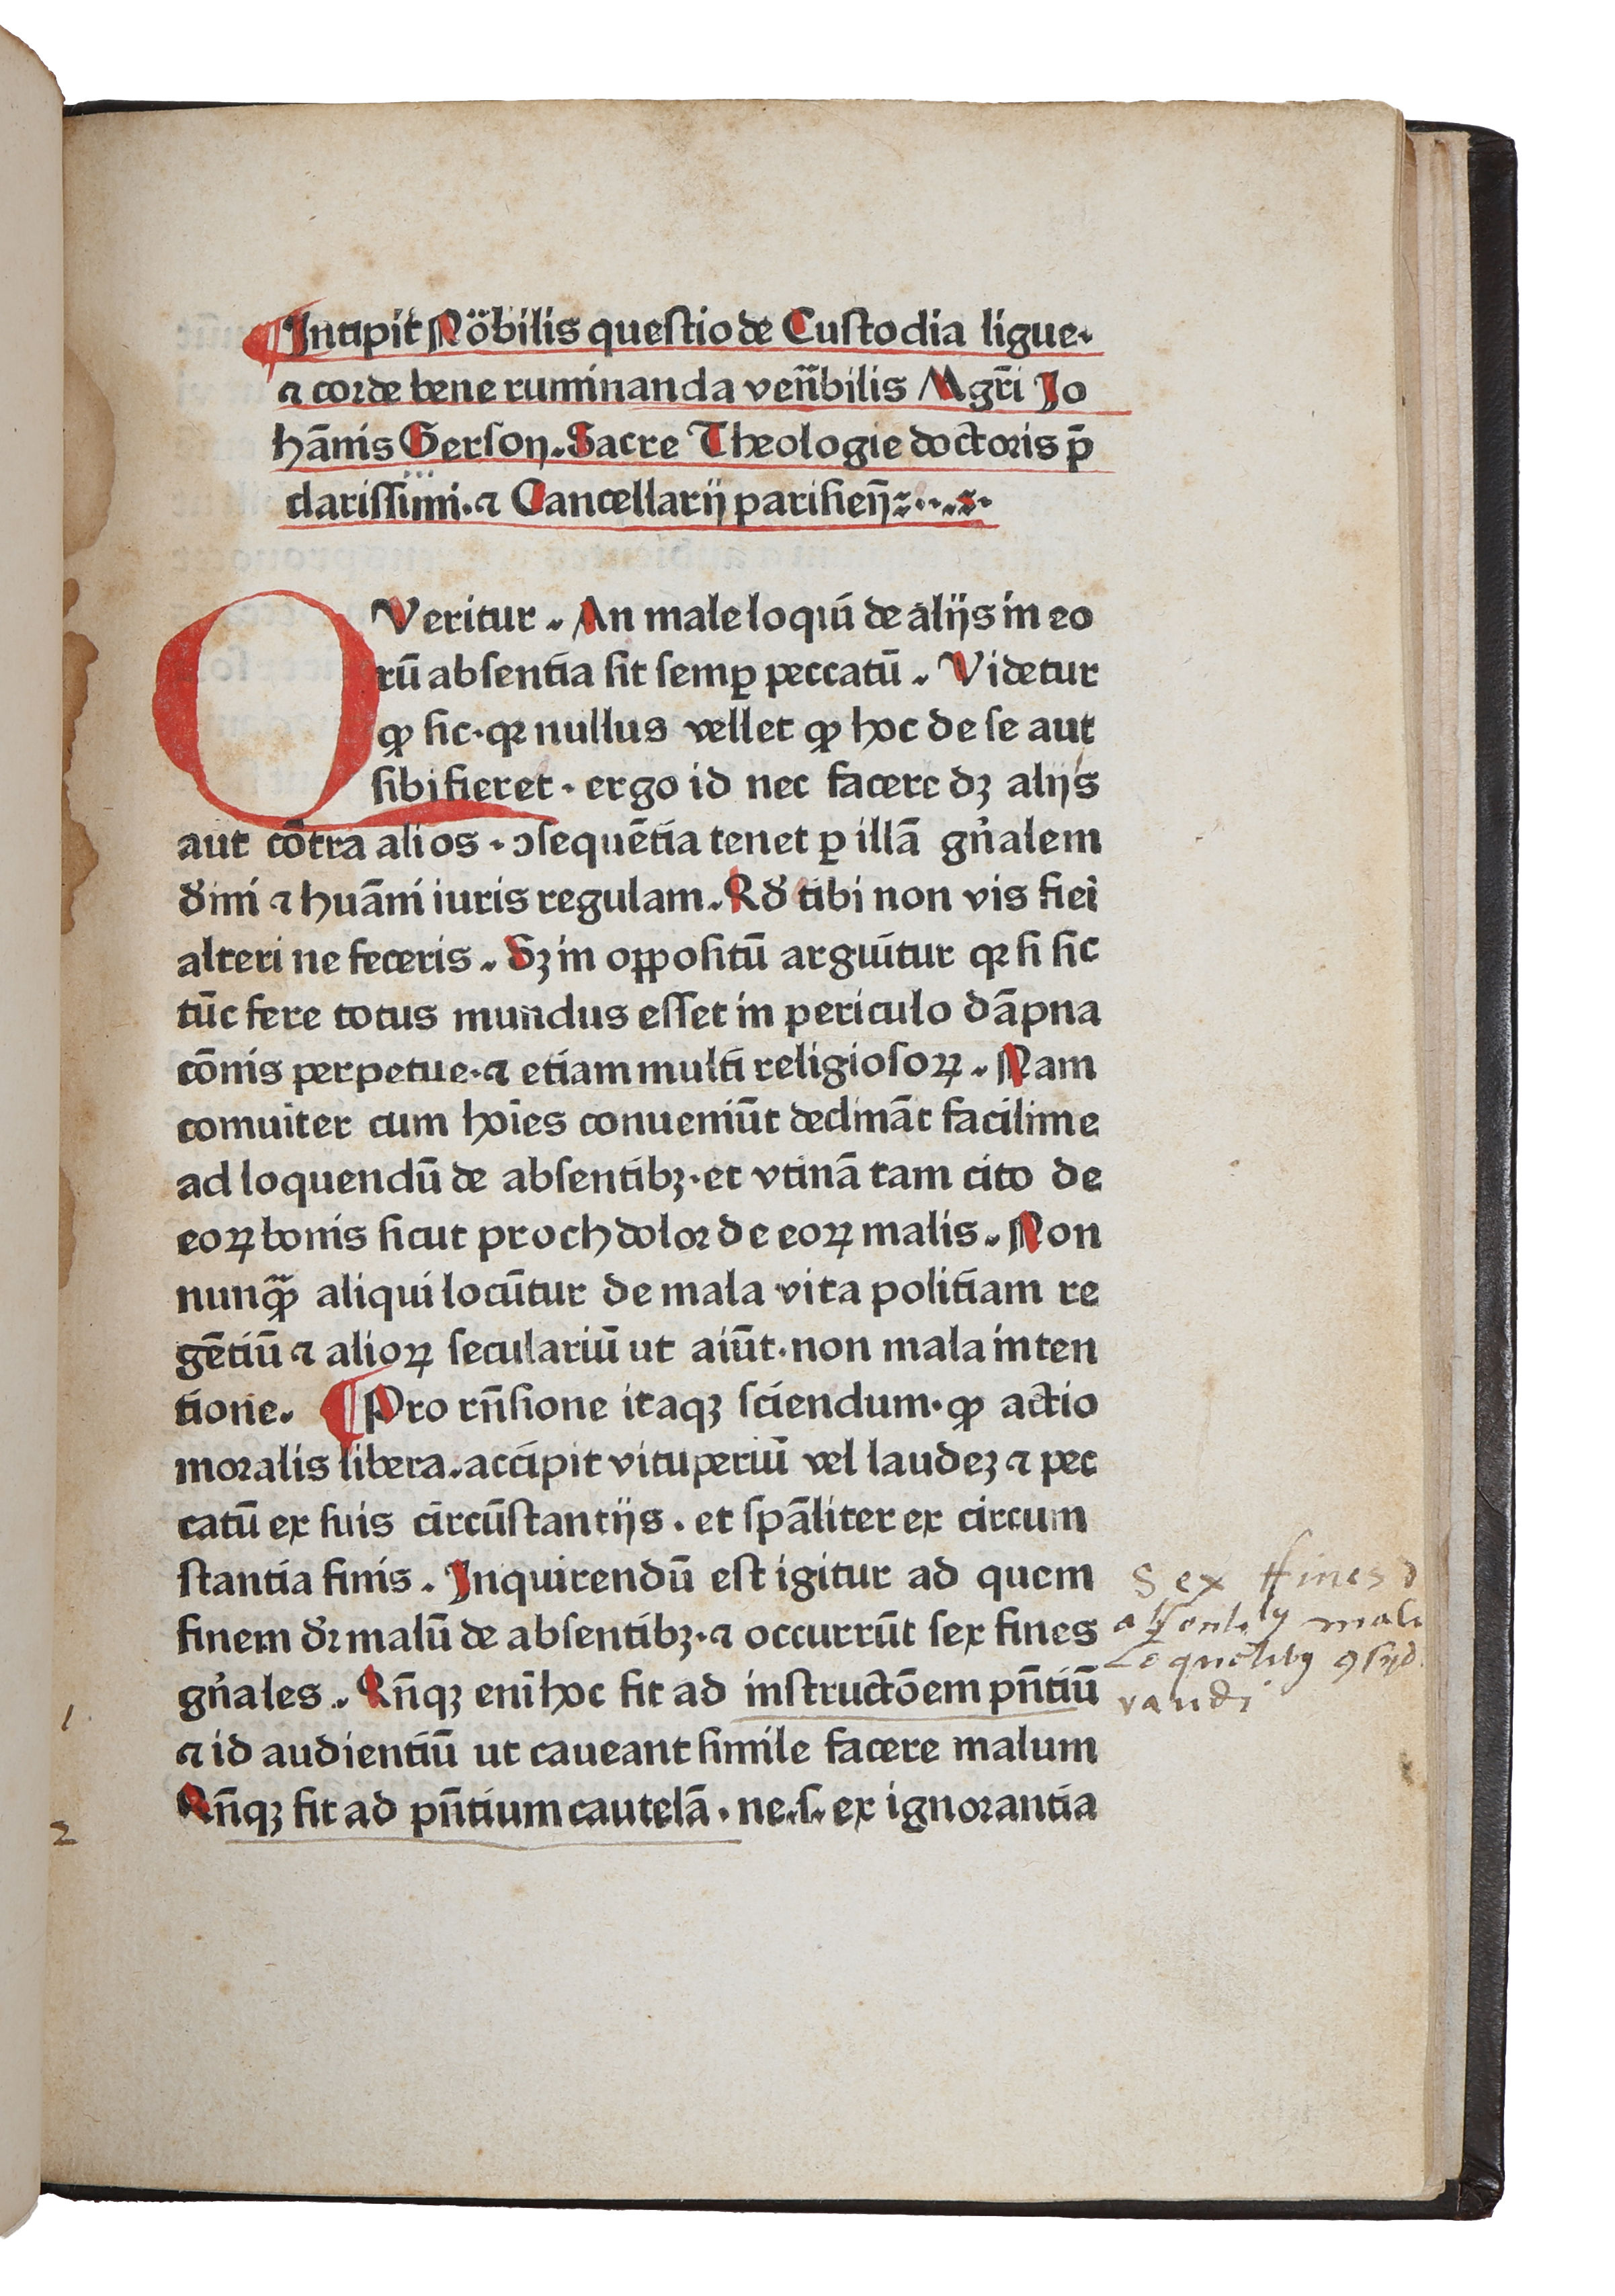 Incipit Nobilis questio de Custodia ligue.
⁊ corde bene ruminanda veñbilis Mgr̄i Jo
hãnis Gerson. Sacre Theologie doctoris p̄
clarissimi. ⁊ Cancellarij parisieñ
QVeritur. An male loqui de alijs in eo
rū absentia sit semꝑ peccatū. Videtur
ꝙ sic. qꝛ nullus vellet ꝙ hoc de se aut
sibi fieret. ergo id nec facere dꝫ alijs
aut cōtra alios. ꝯsequētia tenet ꝑ illā gn̄alem
di̅ni ⁊ huāni iuris regulam. Qd̛ tibi non vis fiei̅
alteri ne feceris. Sꝫ in oꝑpositū arguitur qꝛ si sic
tūc fere totus mundus esset in periculo dāpna
cōnis perpetue. ⁊ etiam multi religiosoꝝ. Nam
comuiter cum hoīes conueniūt declināt facilime
ad loquendū de absentibꝫ. et vtinā tam cito de
eoꝝ bonis sicut proch dolor de eoꝝ malis. Non
nunꝙ̄ aliqui locūtur de mala vita politiam re
gētiū ⁊ alioꝝ seculariū ut aiūt. non mala inten
tione. ¶ Pro rn̄sione itaqꝫ sciendum. ꝙ actio
moralis libera. accipit vituperiū vel laudeꝫ ⁊ pec
catū ex suis circūstantijs. et spāliter ex circum
stantia finis. Inquirendū est igitur ad quem
finem dr̄ malū de absentibꝫ. ⁊ occurrūt sex fines
gn̄ales. Qn̄qꝫ eni hoc fit ad instructōem pn̄tiū
⁊ id audientiū ut caueant simile facere malum
Qn̄qꝫ fit ad pn̄tium cautelā. ne .s. ex ignorantia
Sex ffines d
absentibꝫ mali
vandi
1
2